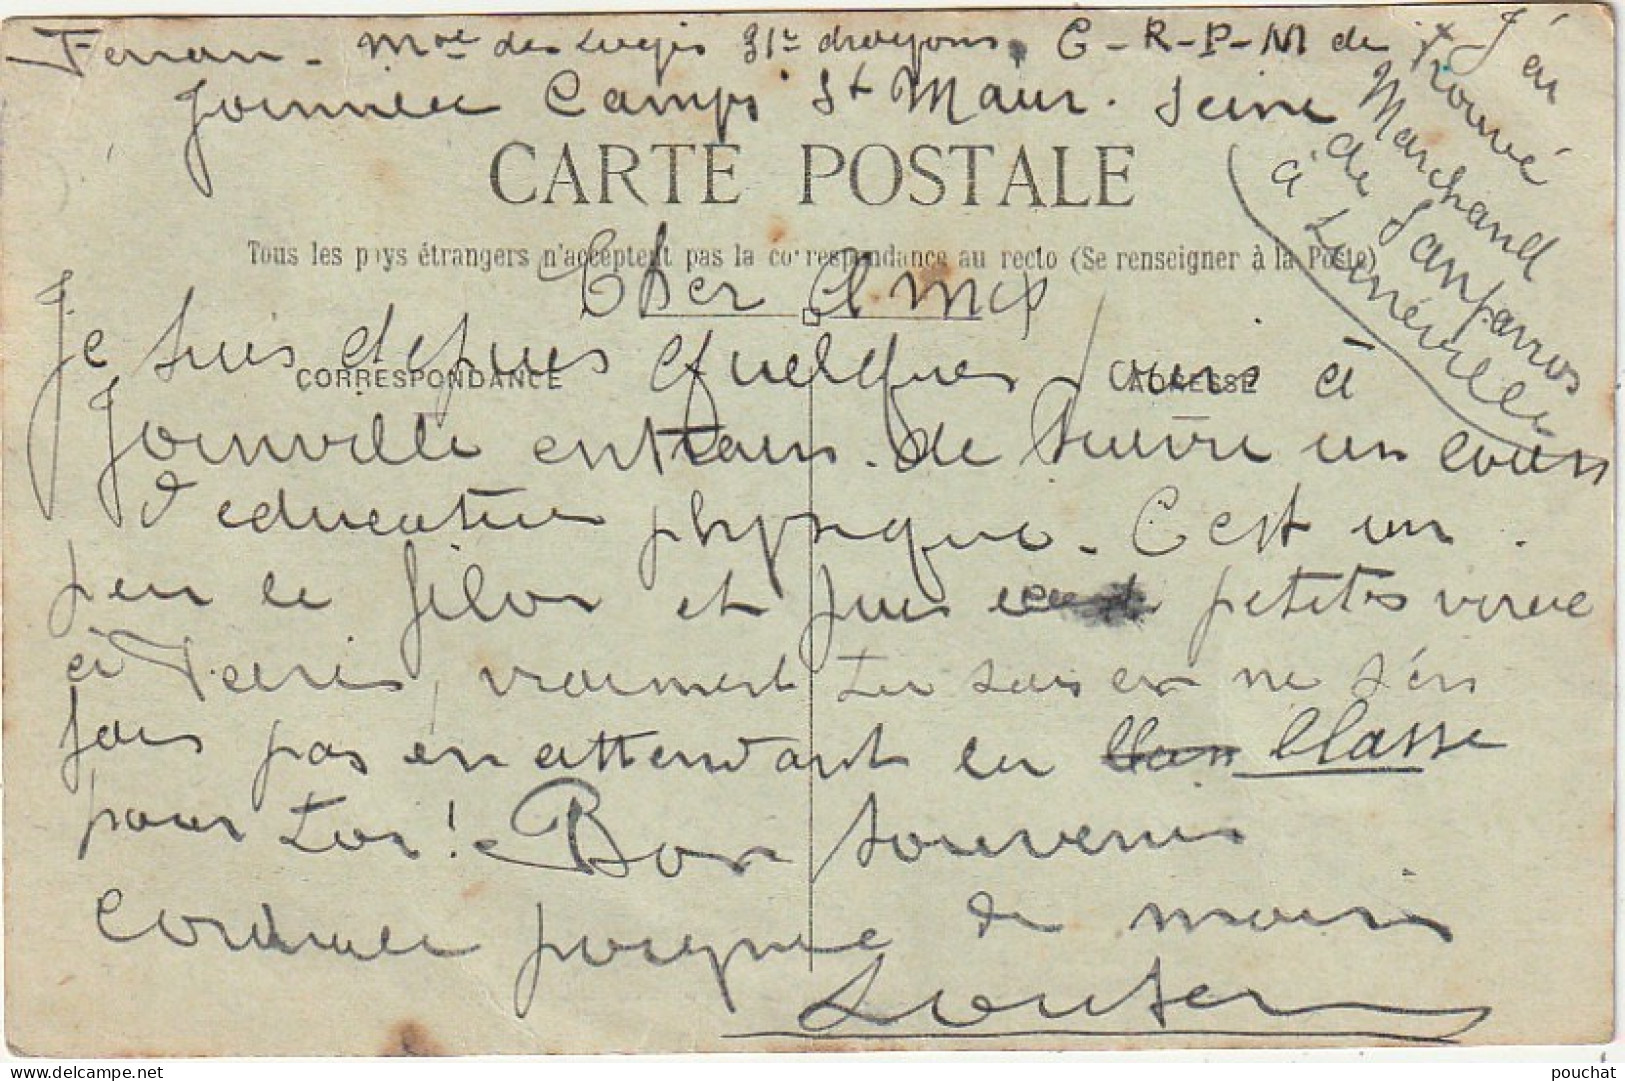 Ferran - M<sup>al</sup> des Logis 31<sup>e</sup> dragons. C-R-P-M de
Joinville Camp St Maur. Seine
J'ai
trouvé
Marchand
de Sanparros
à Lunéville
CARTE POSTALE
Tous les pays étrangers n'acceptent pas la correspondance au recto (Se renseigner à la Poste)
Cher Ami
CORRESPONDANCE
ADRESSE
Je suis depuis quelques jours à
Joinville entrain de suivre un cours
d'education physique. C'est un
peu le filon et puis petites virée
à Paris, vraiment tu sais on ne s'en
fais pas en attendant la Classe
pour toi! Bon souvenir
cordiale poignée de main
pouchat